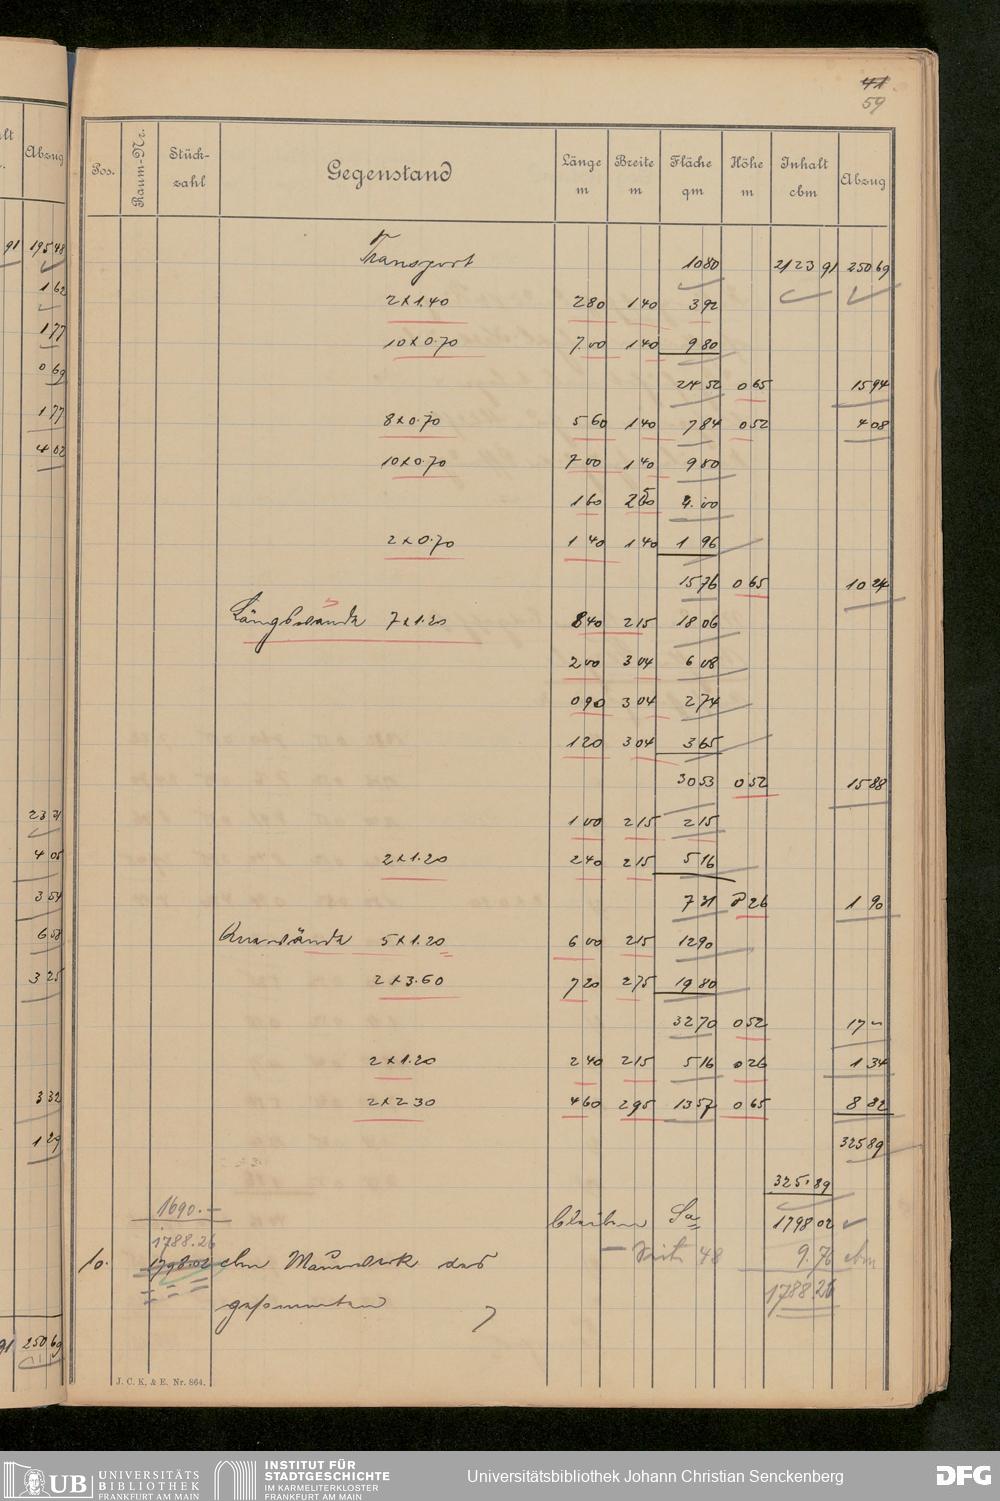 41
59
Pos. Raum-Nr. Stück-zahl Gegenstand Länge m Breite m Fläche qm Höhe m Inhalt cbm Abzug
lt Abzug
Transport 10 80 2123 91 250 69
91 195 48
2 x 1.40 2 80 1 40 3 92
1 62
10 x 0.70 7.00 1 40 9 80
1 77
24 52 0 65 15 94
0 69
8 x 0.70 5 60 1 40 7 84 0 52 4 08
1 77
10 x 0.70 7 00 1 40 9 80
4 02
1 60 2 50 4.00
2 x 0.70 1 40 1 40 1 96
15 76 0 65 10 24
Längswände 7 x 1.20 8 40 2 15 18 06
2 00 3 04 6 08
0 90 3 04 2 74
1 20 3 04 3 65
30 53 0 52 15 88
1 00 2 15 2 15
23 21
2 x 1.20 2 40 2 15 5 16
4 05
7 31 0 26 1 90
3 54
Querwände 5 x 1.20 6 00 2 15 12 90
6 58
2 x 3.60 7 20 2 75 19 80
3 25
32 70 0 52 17 –
2 x 1.20 2 40 2 15 5 16 0 26 1 34
2 x 2 30 4 60 2 95 13 57 0 65 8 82
3 32
325 89
1 29
325.89
1690.–
bleiben Sa 1798 02
1788.26
– Seite 48 9.76 cbm
10. 1798.02 cbm Mauerwerk des
1788.26
gesammten
91 250 69
J. C. K. & E. Nr. 864.
UB UNIVERSITÄTS
BIBLIOTHEK
FRANKFURT AM MAIN
INSTITUT FÜR
STADTGESCHICHTE
IM KARMELITERKLOSTER
FRANKFURT AM MAIN
Universitätsbibliothek Johann Christian Senckenberg
DFG